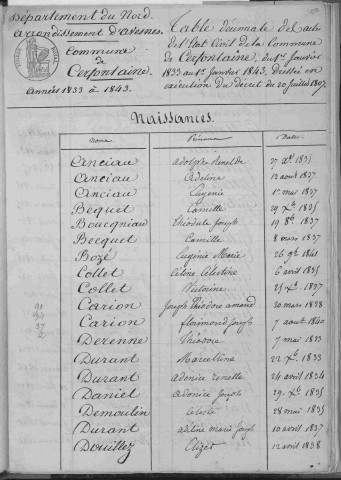 Département du Nord.
arrondissement d'avesnes.
Commune
de
Cerfontaine.
années 1833 à 1843.
Table décennale des actes
de l'État Civil de la Commune
de Cerfontaine, du 1er Janvier
1833 au 1er Janvier 1843, dressée en
exécution du Décret du 20 juillet 1807.
Naissances.
Noms Prénoms Dates
Anciau adolphe 1835
Anciau adeline 13 aout 1837
Anciau Eugénie 1er mai 1837
Bequet Camille 29 Xbre 1835
Boucqniau théodule Joseph 19 8bre 1837
Becquet Camille 8 mars 1837
Bozé Eugénie Marie 26 9bre 1841
Collet Céline Célestine 6 avril 1835
Collet antoine 25 Xbre 1837
Carion Joseph théodore amand 20 mars 1838
Carion florimond Joseph 7 aout 1840
Derenne théodore 7 mai 1833
Durant Marcelline 22 Xbre 1833
Durant adonice 24 avril 1834
Daniel adonice Joseph 29 Xbre 1835
Demoulin Céleste 28 mai 1835
Durant adeline marie Joseph 10 avril 1837
Douillez Elizée 12 avril 1838